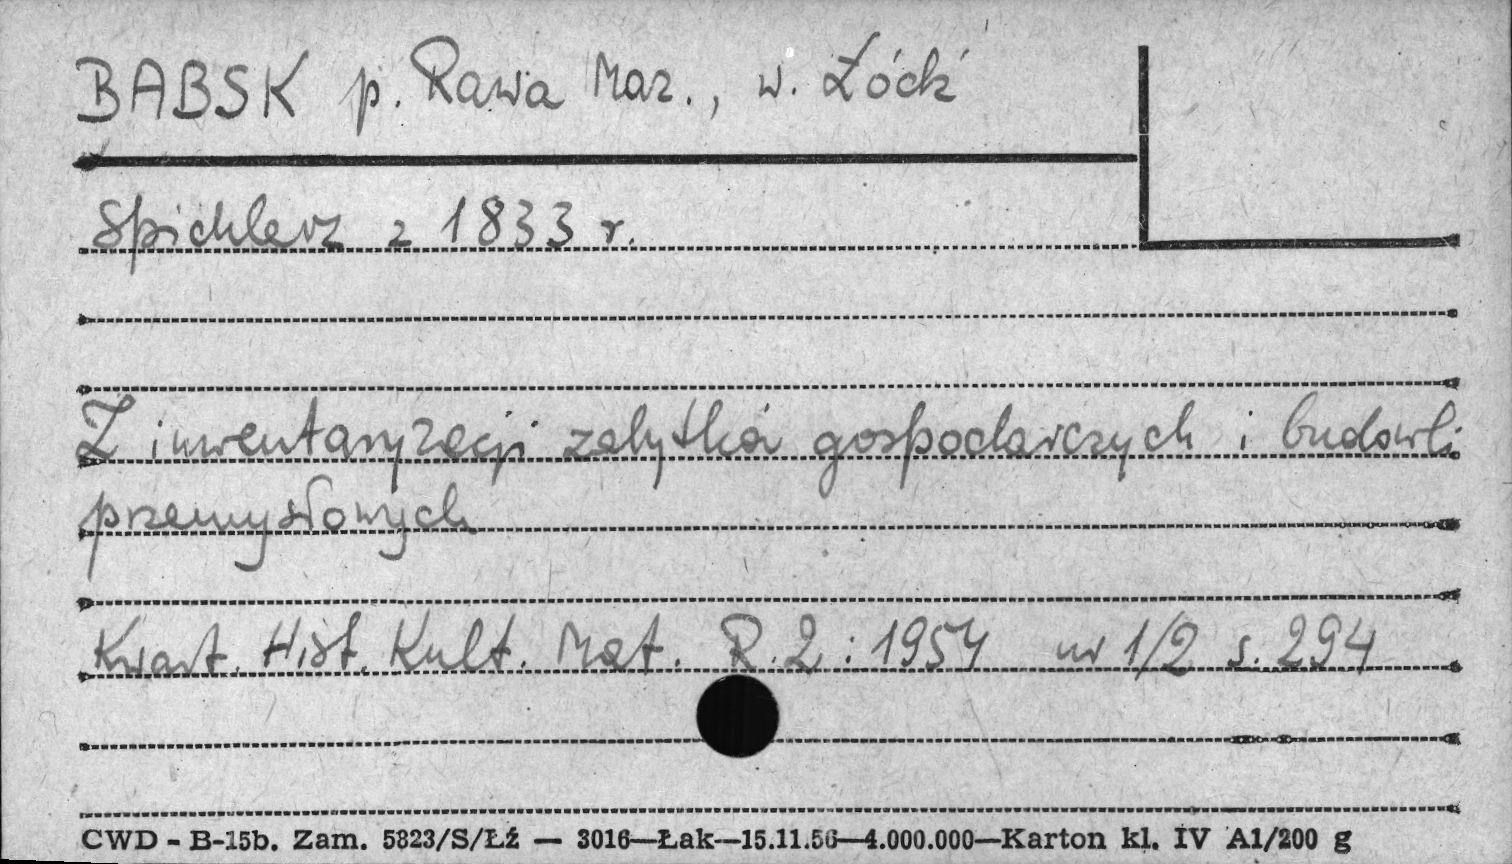 BABSK p. Rawa Maz., w. Łódź
Spichlerz z 1833 r.
Z inwentaryzacji zabytków gospodarczych i budowli
przemysłowych
Kwart. Hist. Kult. Mat. R.2:1954 nr 1/2 s. 294
CWD - B-15b. Zam. 5823/S/Łź — 3016—Łak—15.11.56—4.000.000—Karton kl. IV A1/200 g